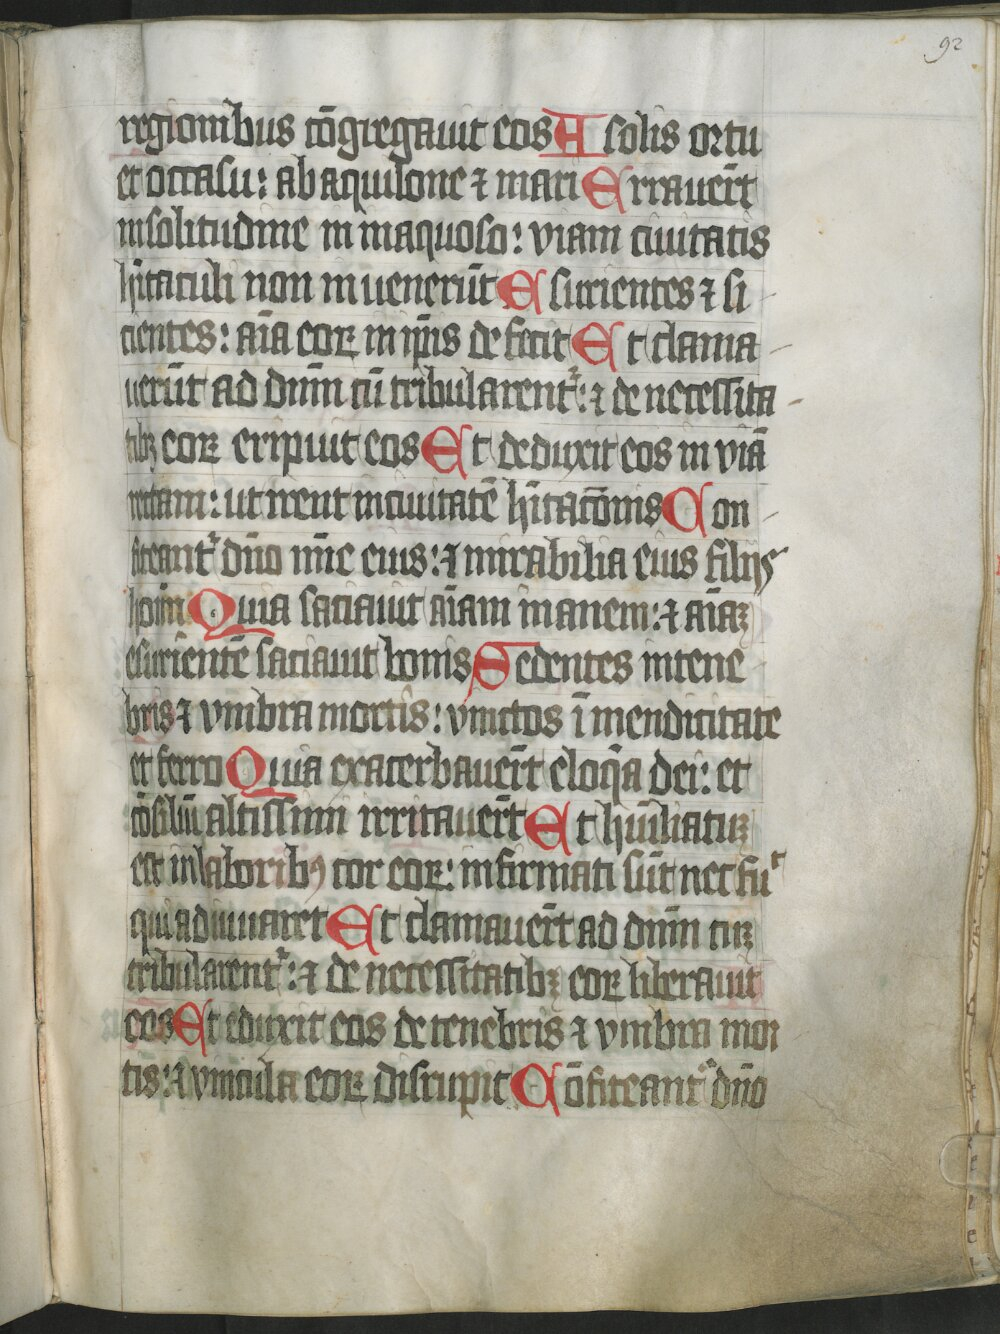 92
regionibus cōgregauit eos A solis ortu
et occasu: ab aquilone ⁊ mari Errauer̄t
in solitudine in inaquoso: viam ciuitatis
hītaculi non inuenerūt Esurientes ⁊ si
cientes: aīa eoꝝ in ip̄is defecit Et clama
uerūt ad dūm cū tribularentᷣ: ⁊ de necessita
tibꝫ eoꝝ eripuit eos Et deduxit eos in viā
rectam: ut irent in ciuitatē hītacōnis Con
fiteantᷣ dn̄o mīe eius: ⁊ mirabilia eius filijs
hoīm Quia saciauit aīam inanem: ⁊ aīaꝫ
esurientē saciauit bonis Sedentes in tene
bris ⁊ vmbra mortis: vinctos ī mendicitate
et ferro Quia exacerbauer̄t eloq̄a dei: et
cōsiliū altissimi irritauer̄t Et hūiliatuꝫ
est in laboribꝰ cor eoꝝ: infirmati sūt nec fuͬ
qui adiuuaret Et clamauer̄t ad dūm cuꝫ
tribularentᷣ: ⁊ de necessitatibꝫ eoꝝ liberauit
eos Et eduxit eos de tenebris ⁊ vmbra mor
tis: ⁊ vincula eoꝝ disrupit Cōfiteantᷣ dn̄o